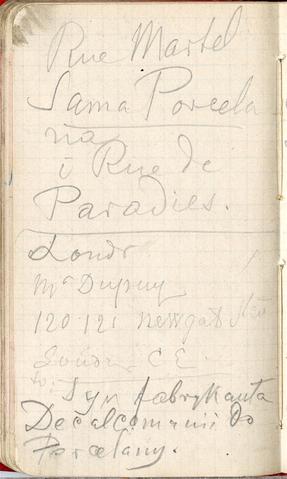 Rue Martel
Sama Porcela
na
i Rue de
Paradies.
Londr
Mr Dupuy
120 121 Newgat
London C E.
Syn fabrykanta
Decalcomanii do
Porcelany.